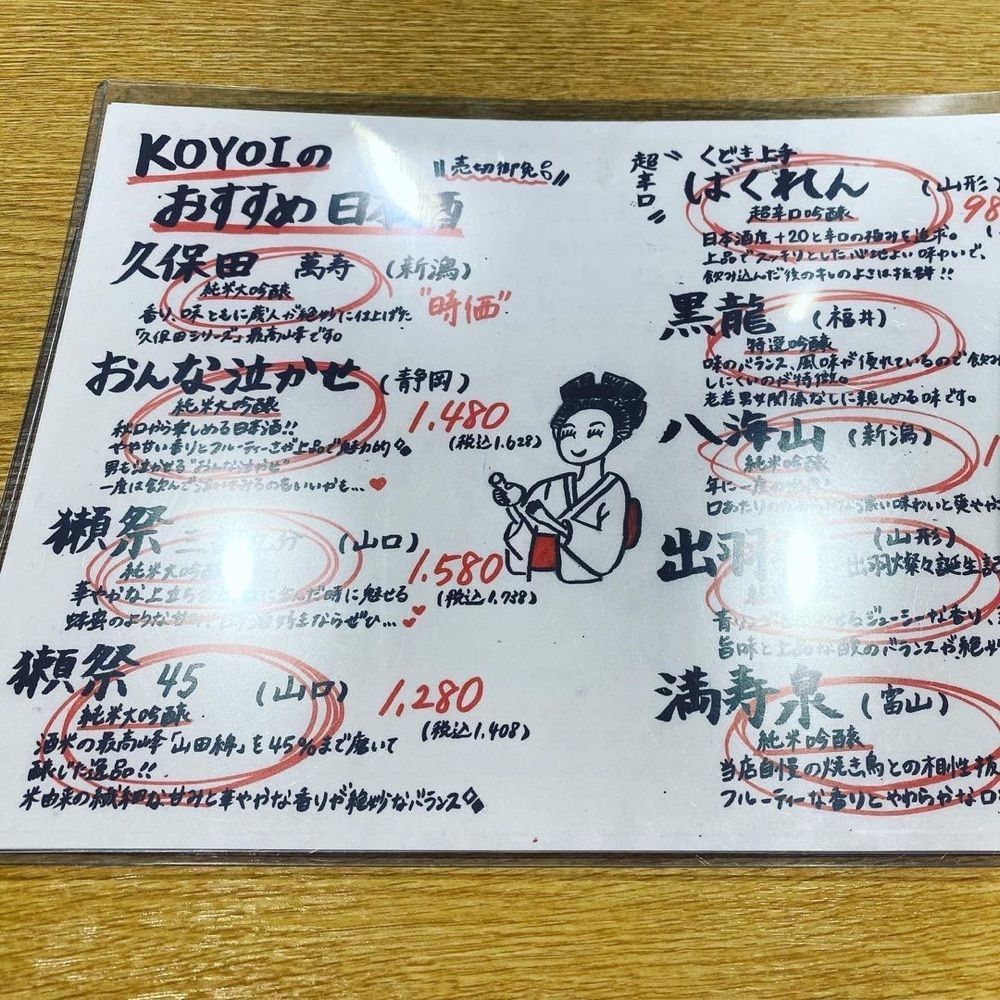 KOYOIの
おすすめ日本酒
売切御免
久保田 萬寿 (新潟)
純米大吟醸
"時価"
香り、味ともに蔵人が絶妙に仕上げた
「久保田シリーズ」最高峰です。
おんな泣かせ (静岡)
純米大吟醸
1.480
(税込1.628)
秋口から楽しめる日本酒!!
やや甘い香りとフルーティーさが上品で魅力的
男も泣かせる"おんな泣かせ"
一度は飲んで泣いてみるのもいいかも…
獺祭 三 分 (山口)
純米大吟醸
1.580
(税込1.738)
華やかな上立ち 時に魅せる
蜂蜜のような甘 日本酒好きならぜひ…
獺祭 45 (山口)
純米大吟醸
1,280
(税込1.408)
酒米の最高峰「山田錦」を45%まで磨いて
醸した逸品!!
米由来の繊細な甘みと華やかな香りが絶妙なバランス
超辛口
くどき上手
ばくれん (山形)
超辛口吟醸
98
日本酒度+20と辛口の極みを追求。
上品でスッキリとした心地よい味わいで、
飲み込んだ後のキレのよさは抜群!!
黒龍 (福井)
特選吟醸
味のバランス、風味が優れているので飲み
しにくいのが特徴。
老若男女関係なしに親しめる味です。
八海山 (新潟)
純米吟醸
年に一度の
口あたりのなめらかな 味わいと爽やか
出羽 (山形)
出羽燦々誕生記
青リンゴ ジューシーな香り、
旨味と上品な酸のバランスが絶妙
満寿泉 (富山)
純米吟醸
当店自慢の焼き鳥との相性抜
フルーティーな香りとやわらかな口